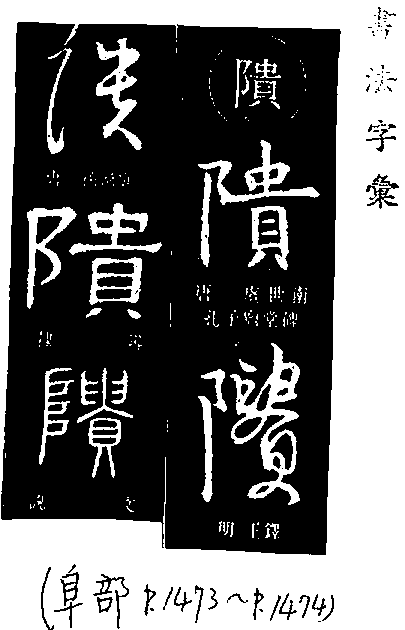 書法字彙
隤
隤
唐 虞世南
孔子廟堂碑
隤
明 王鐸
隤
書
隤
隤
說 文
(阜部 P.1473~P.1474)